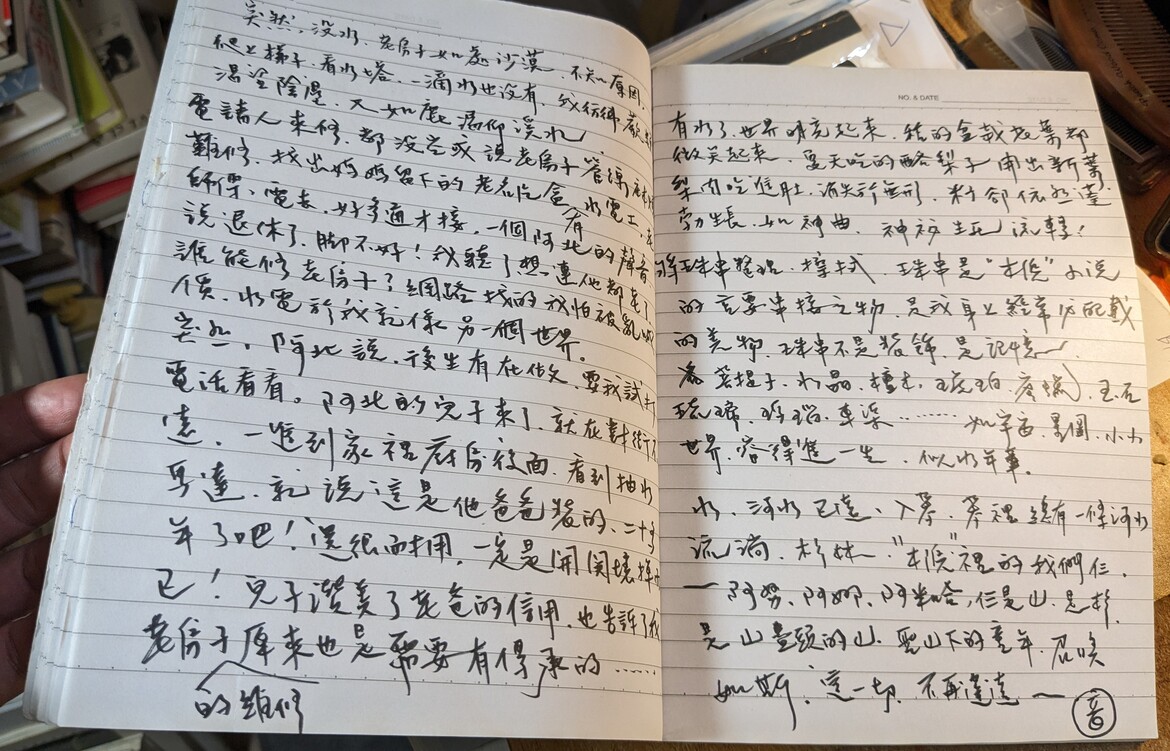 突然,沒水、老房子如處沙漠、不知原因、
爬上梯子、看水塔、一滴水也沒有,我彷彿
渴望陰溼、又如鹿渴仰溪水
電請人來修、都沒空或說老房子管線
難修、找出媽媽留下的老名片盒,有水電工、
師傅、電去、好多通才接、一個阿北的聲音
說退休了、脚不好!我聽了想、連他都老了
誰能修老房子?網路找的我怕被亂
價、水電於我就像另一個世界。
突然、阿北說、後生有在做、要我試打
電話看看。阿北的兒子來了、就在對街不
遠、一進到家裡廚房後面、看到抽水
馬達、就說這是他爸爸裝的、二十多
年了吧!還很耐用、一定是開関壞掉而
已!兒子讚美了老爸的信用、也告訴了我
老房子原來也是需要有傳承的……
的維修
NO. & DATE
有水了、世界明亮起來、我的盆栽枝葉都
微笑起來、夏天吃的酪梨子冒出新葉
梨肉吃進肚、消失於無形、籽卻依然蓬
勃生長、如神曲、神祕生死流轉!
將珠串整理、擦拭、珠串是"木侯"小說
的重要串接之物、是我身上經年所配戴
的美物、珠串不是裝飾、是記憶、
菩提子、水晶、檀木、琥珀、虎眼、玉石
琉璃、瑪瑙、車渠……… 如宇宙、星圖、小小
世界、容得進一生、似水年華。
水、河水已遠、入夢、夢裡總有一條河水
流淌、杉妹、"木侯"裡的我們仨、
一阿努、阿娜、阿米哈,仨是山、是杉
是山疊頭的山、聖山下的童年、召喚
如斯、這一切、不再遙遠一
音